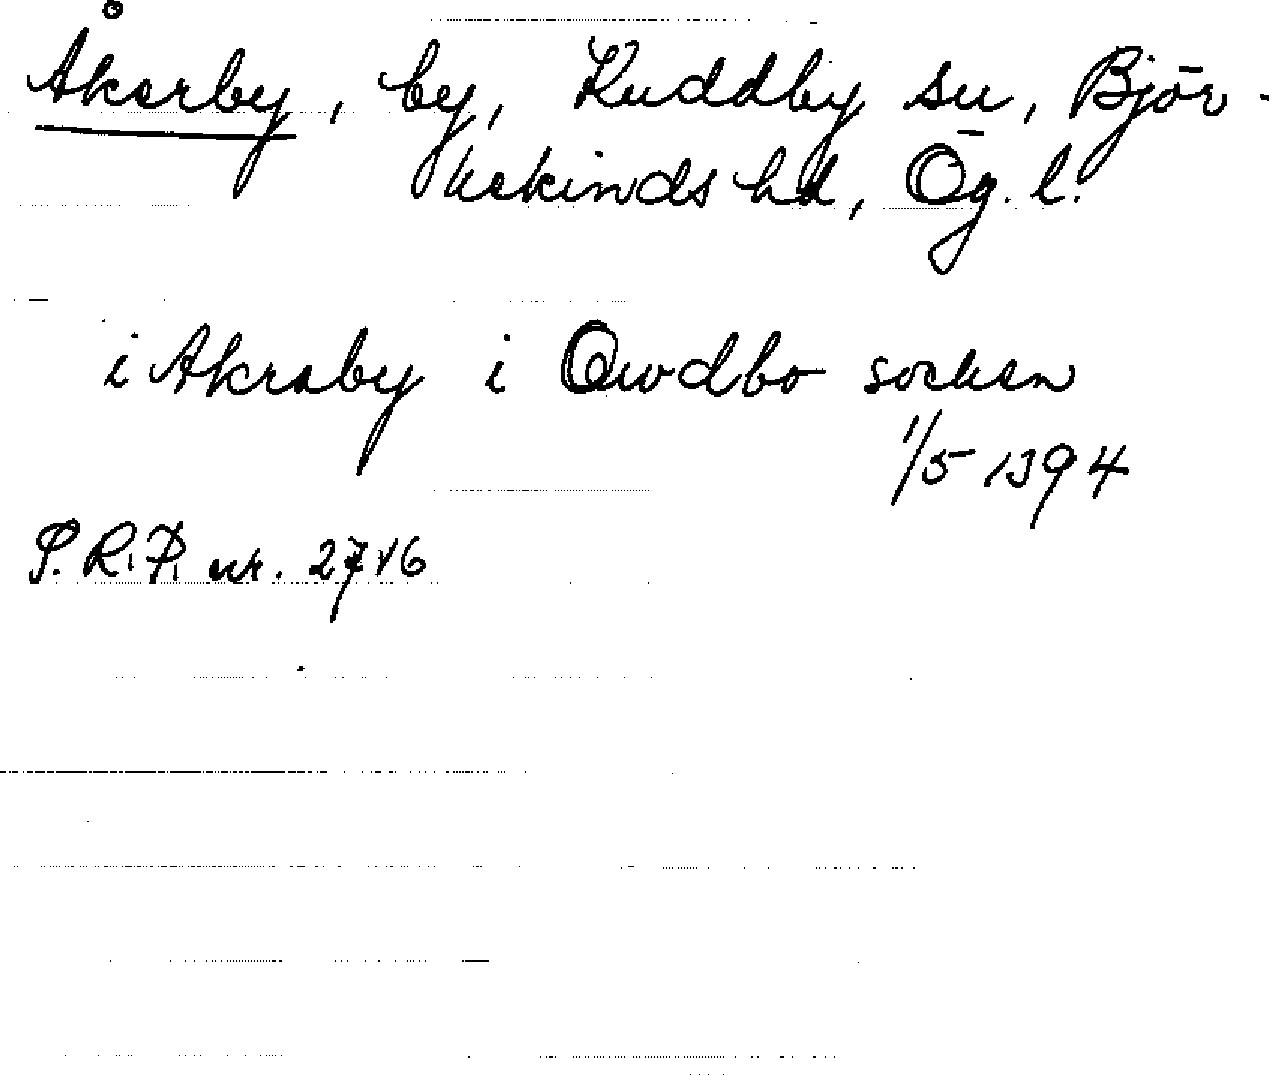 Åkerby, by, Kuddby sn, Björ-
kekinds hd, Ög. l.
i Akraby i Qwdbo socken
1/5 1394
S.R.P. nr. 2746